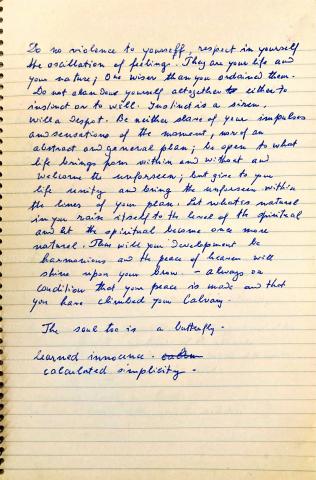 Do no violence to yourself, respect in yourself
the oscillation of feelings. They are your life and
your nature; One wiser than you ordained them.
Do not abandon yourself altogether to either to
instinct or to will. Instinct is a siren,
will a despot. Be neither slave of your impulses
and sensations of the moment, nor of an
abstract and general plan; be open to what
life brings from within and without and
welcome the unforseen; but give to your
life unity and bring the unforseen within
the lines of your plan. Let what is natural
in you raise itself to the level of the spiritual
and let the spiritual become once more
natural. Thus will your development be
harmonious and the peace of heaven will
shine upon your brow. - always on
condition that your peace is made and that
you have climbed your Calvary.
The soul too is a butterfly.
Learned innocence.
calculated simplicity.